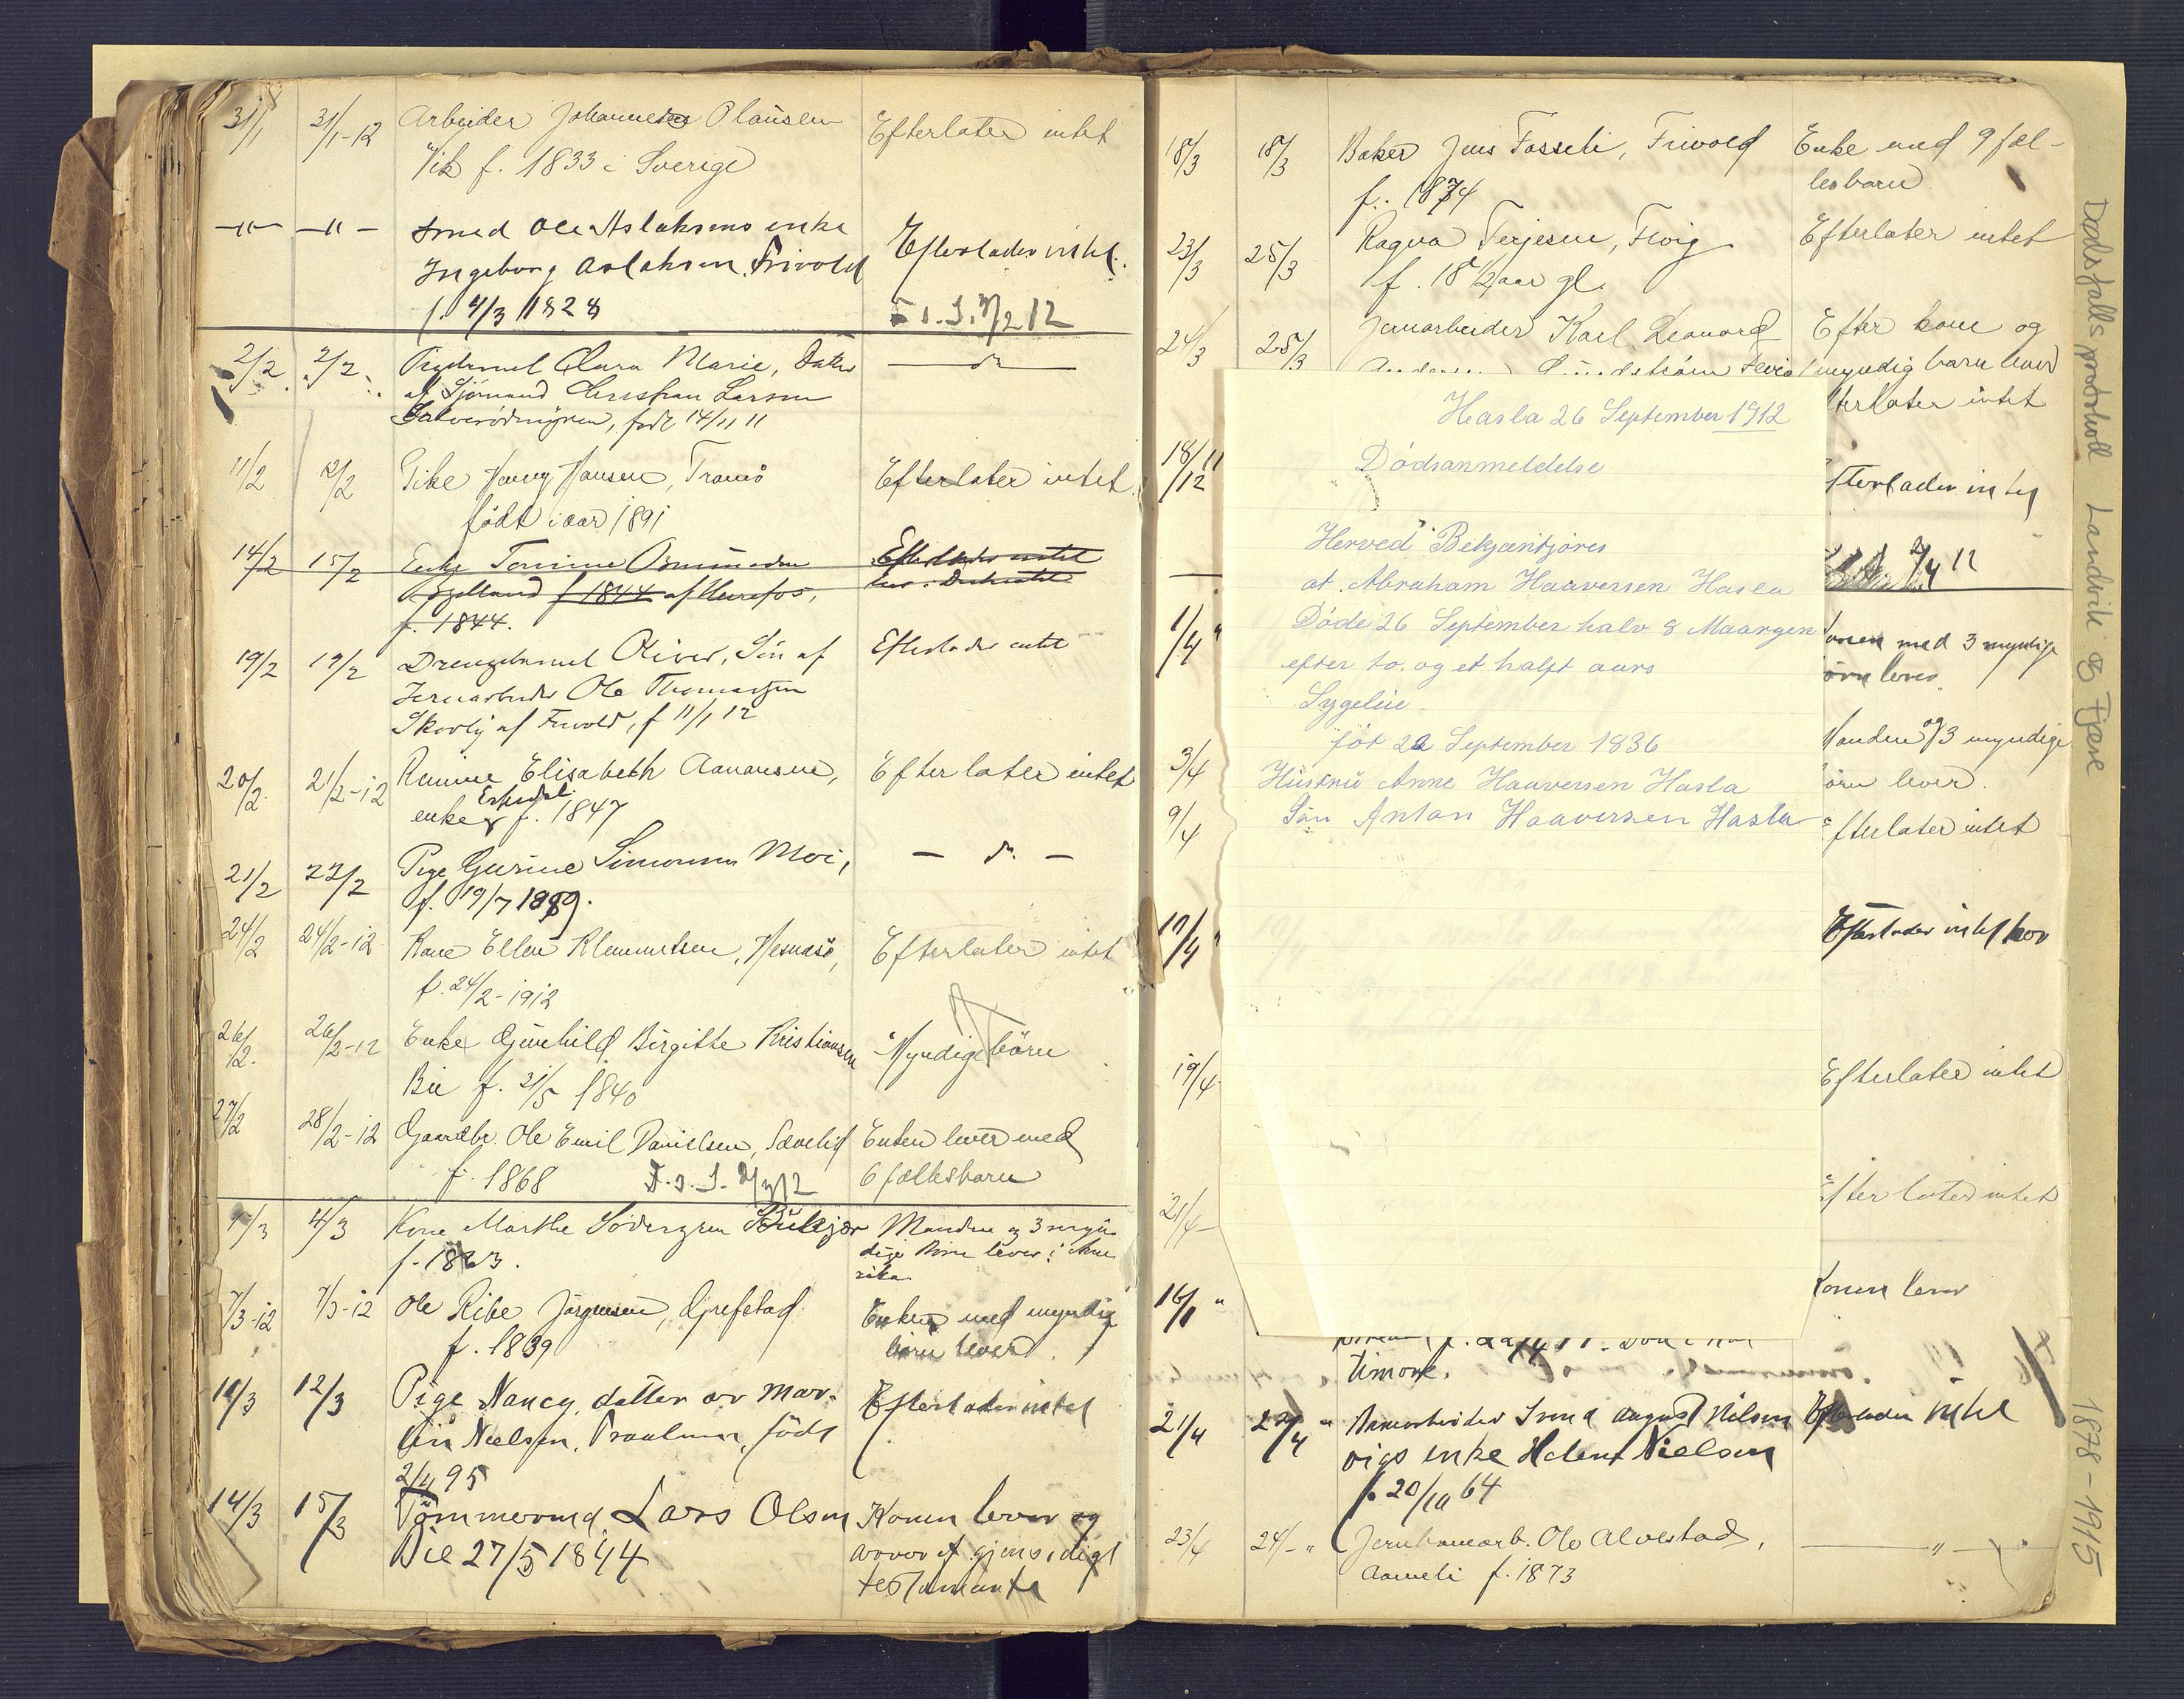 31/1 31/1-12 Arbeider Johannes Olausen Efterlater intet
Vik f. 1833 i Sverige
—"— —"— Smed Ole Aslaksens enke
Ingeborg Aslaksen Frivold Efterlader intet.
f. 4/3 1828
2/2 2/2 Pigebarnet Clara Marie, Datter — do —
af Sjömand Christian Larsen
født 14/11 11
11/2 12/2 Pike Jenny Hansen, Tromö Efterlater intet.
födt i aar 1891
14/2 15/2 Enke Tomine Efterlader intet
f 1844 af Herefos,
f. 1844.
19/2 19/2 Drengebarnet Oliver, Sön af Efterlader intet
Jernarbeider Ole Thomassen
af Frivold, f 11/1 12
20/2 21/2-12 Elisabeth Aanonsen, Efterlater intet
enke f. 1847
21/2 22/2 Pige Gurine Simonsen Moi, — do. —
f. 19/7 1889.
24/2 24/2-12 Kone Ellen Klemmetsen, Hesnesö, Efterlater intet
f. 24/2-1912
26/2. 26/2-12 Enke Gunhild Birgitte Kristiansen Myndige börn
Bie f. 31/5 1840
27/2 28/2-12 Gaardbr. Ole Emil Danielsen, Sævelid Enken lever med
f. 1868 6 fællesbarn
4/3 Kone Marthe Södergren Manden og 3 myn-
f. 1863. dige Börn lever i Ame-
rika
7/3-12 7/3-12 Ole Ribe Jörgensen, Grefstad Enken med myndige
f. 1839 börn lever.
10/3 12/3 Pige Nancy, datter av Mar- Efterlader intet
tin Nielsen, födt
2/4 95
14/3 15/3 Tömmermand Lars Olsen Konen lever og
Bie 27/5 1844 gjensidigt
testamente
18/3 18/3 Baker Jens Fosseli, Frivold Enke med 9 fæl-
f. 1874 lesbarn
23/3 25/3 Ragna Terjesen, Fevig Efterlater intet
f. 18 1/2 aar gl.
24/3 25/3 Jernarbeider Karl Leonard Efter kone og
1 myndig barn lever
terlater intet
Hasla 26 September 1912
18/11/12 Dödsanmeldelse
fterlader intet
Herved Bekjæntjöres
at. Abraham Haaversen Hasla
Döde 26 September halv 8 Maargen
1/4 efter to. og et halft aars med 3 myndige
Sygeleie. örn lever.
föt 22 September 1836 Manden og 3 myndige
3/4 Hustru Anne Haaversen Hasla örn lever.
9/4 Sön Anton Haaversen Hasla fterlater intet
17/4 Efterlader intet
19/4 Efterlater intet
21/4 fterlater intet
16/1 " Konen lever
timore.
21/4 22/4 " August Nilsen Efterlader intet
vigs enke Helene Nielsen
f. 20/10 64
23/4 24/- " Jernbanearb. Ole Alvestad, — " —
f. 1873
Dødsfallsprotokoll Landvik og Fjære 1878-1915